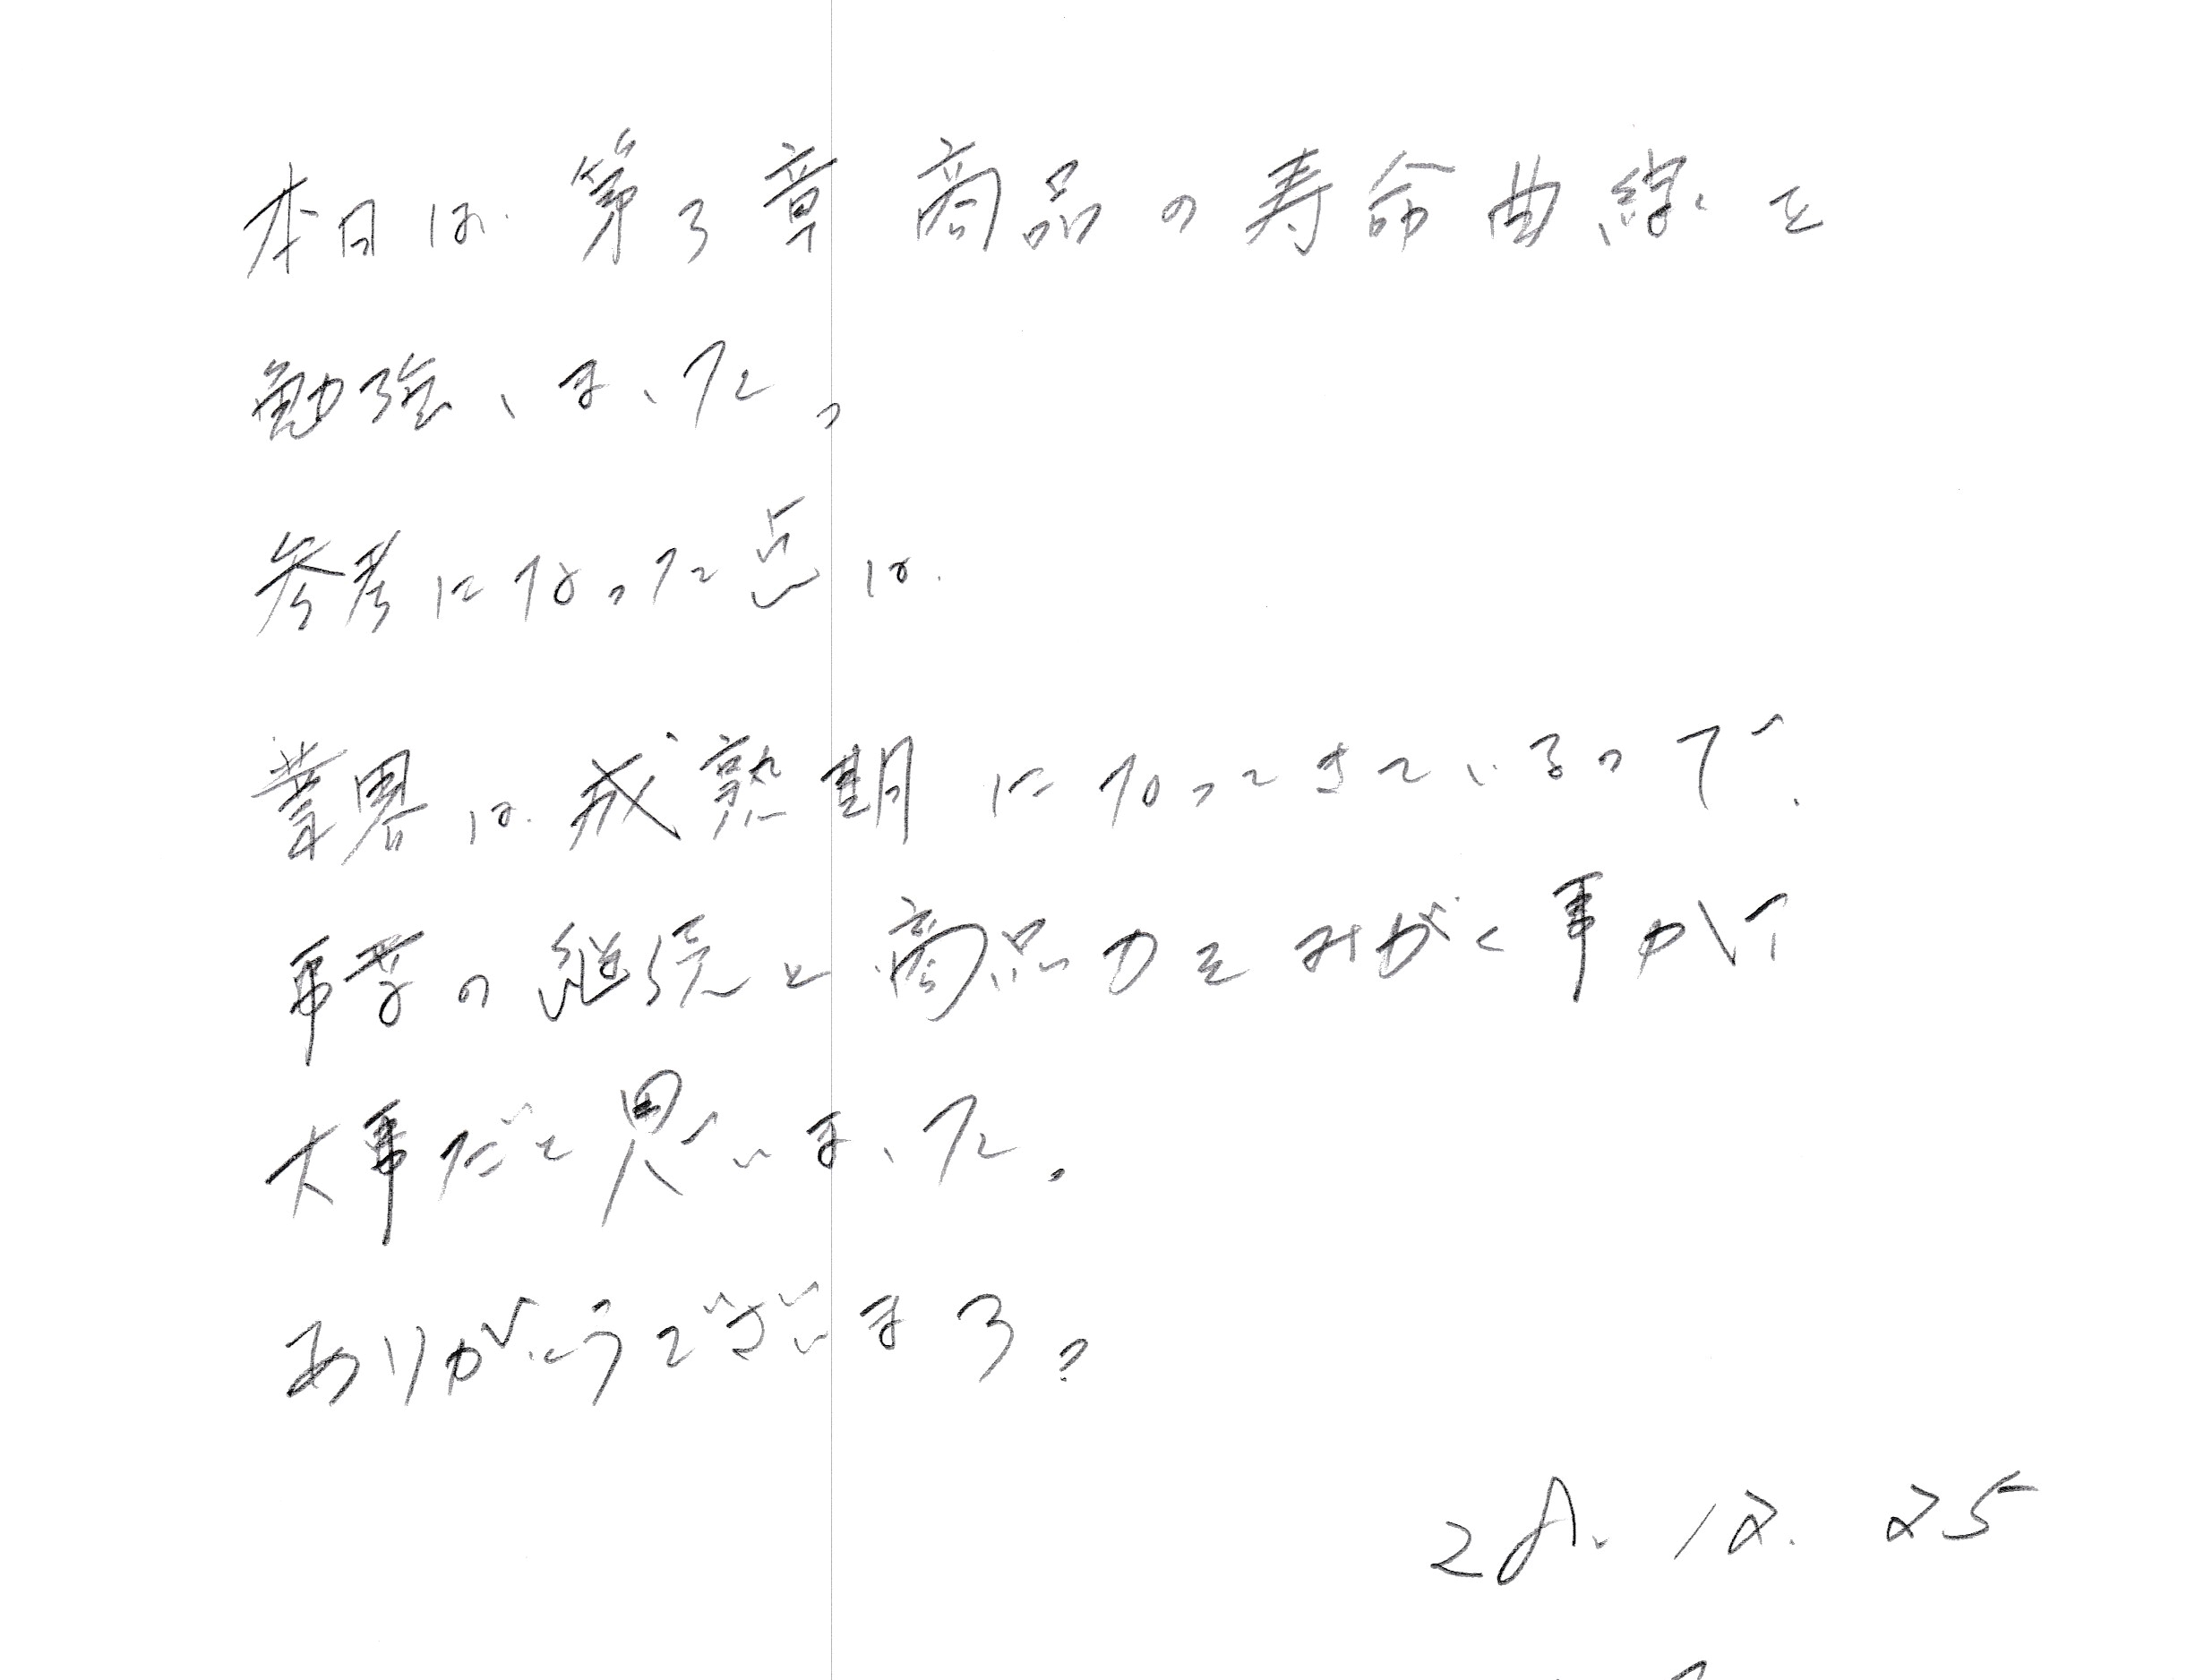 本日は、第3章 商品の寿命曲線を
勉強しました。
参考になった点は、
業界は、成熟期になってきているので、
事業の継続と商品力をみがく事が
大事だと思いました。
ありがとうございます。
28. 12. 25